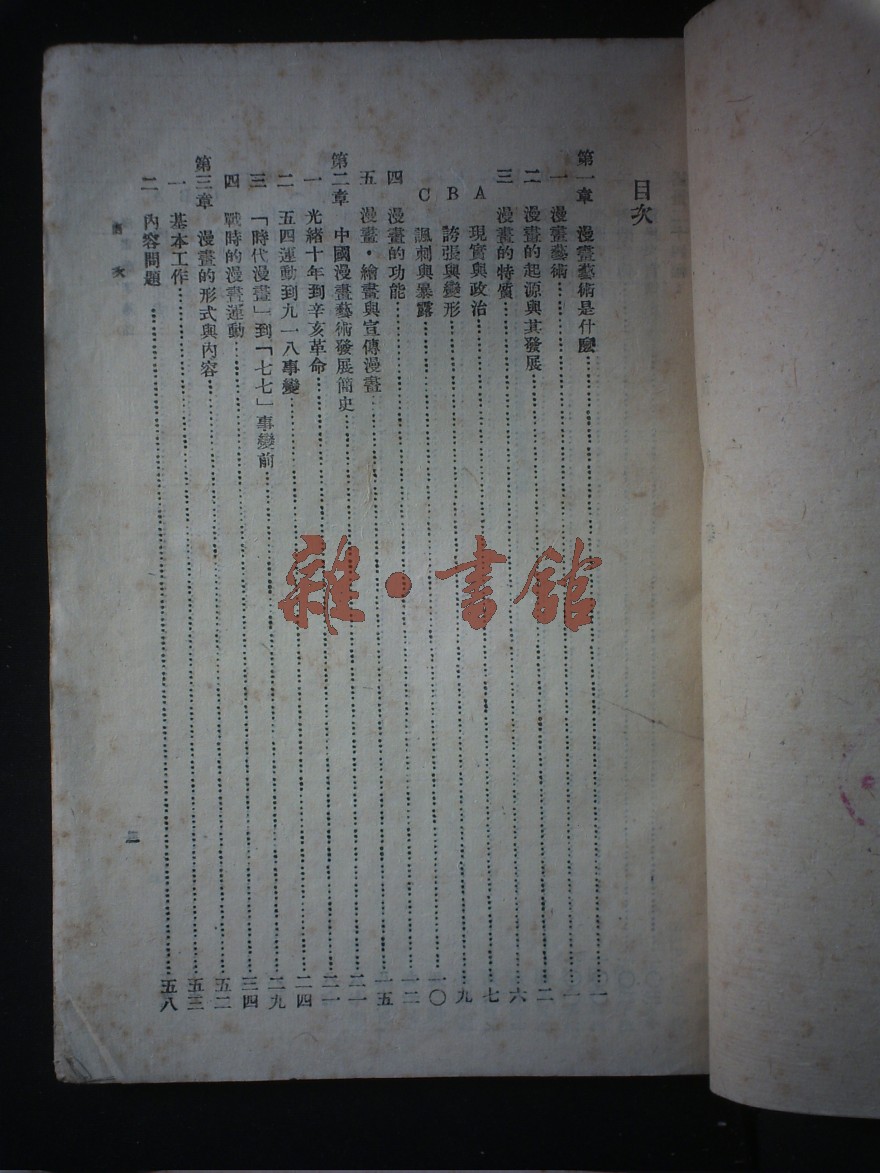 目次
第一章 漫畫藝術是什麼……一
一 漫畫藝術……一
二 漫畫的起源與其發展……二
三 漫畫的特質……六
A 現實與政治……七
B 誇張與變形……九
C 諷刺與暴露……一〇
四 漫畫的功能……一二
五 漫畫・繪畫與宣傳漫畫……一五
第二章 中國漫畫藝術發展簡史……二一
一 光緒十年到辛亥革命……二一
二 五四運動到九一八事變……二四
三 「時代漫畫」到「七七」事變前……二九
四 戰時的漫畫運動……三四
第三章 漫畫的形式與內容……五二
一 基本工作……五三
二 內容問題……五八
目次
雜・書館